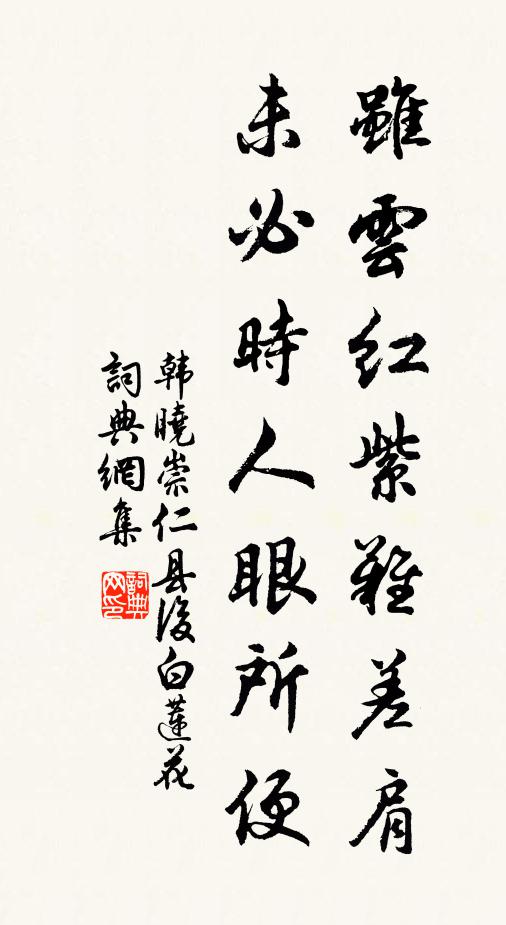 雖雲紅紫難差肩
未必時人眼所便
韩曉崇仁县後白蓮花
詞典網集
詞典网印